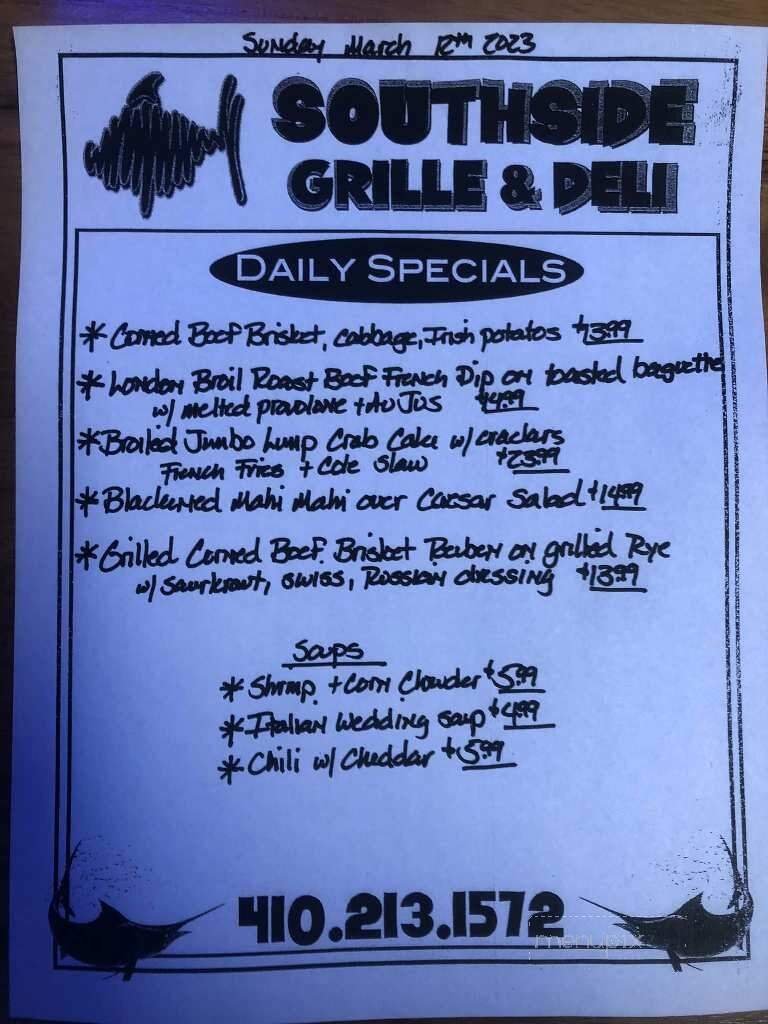 Sunday March 12th 2023
SOUTHSIDE
GRILLE & DELI
DAILY SPECIALS
* Corned Beef Brisket, cabbage, Irish potatos $13.99
* London Broil Roast Beef French Dip on toasted baguette
w/ melted provolone + Au Jus $14.99
* Broiled Jumbo Lump Crab Cake w/ crackers
French Fries + Cole Slaw $23.99
* Blackened Mahi Mahi over Caesar Salad $14.99
* Grilled Corned Beef Brisket Reuben on grilled Rye
w/ Saurkraut, swiss, Russian dressing $13.99
Soups
* Shrimp + Corn Chowder $5.99
* Italian Wedding soup $4.99
* Chili w/ Cheddar $5.99
410.213.1572
menupix